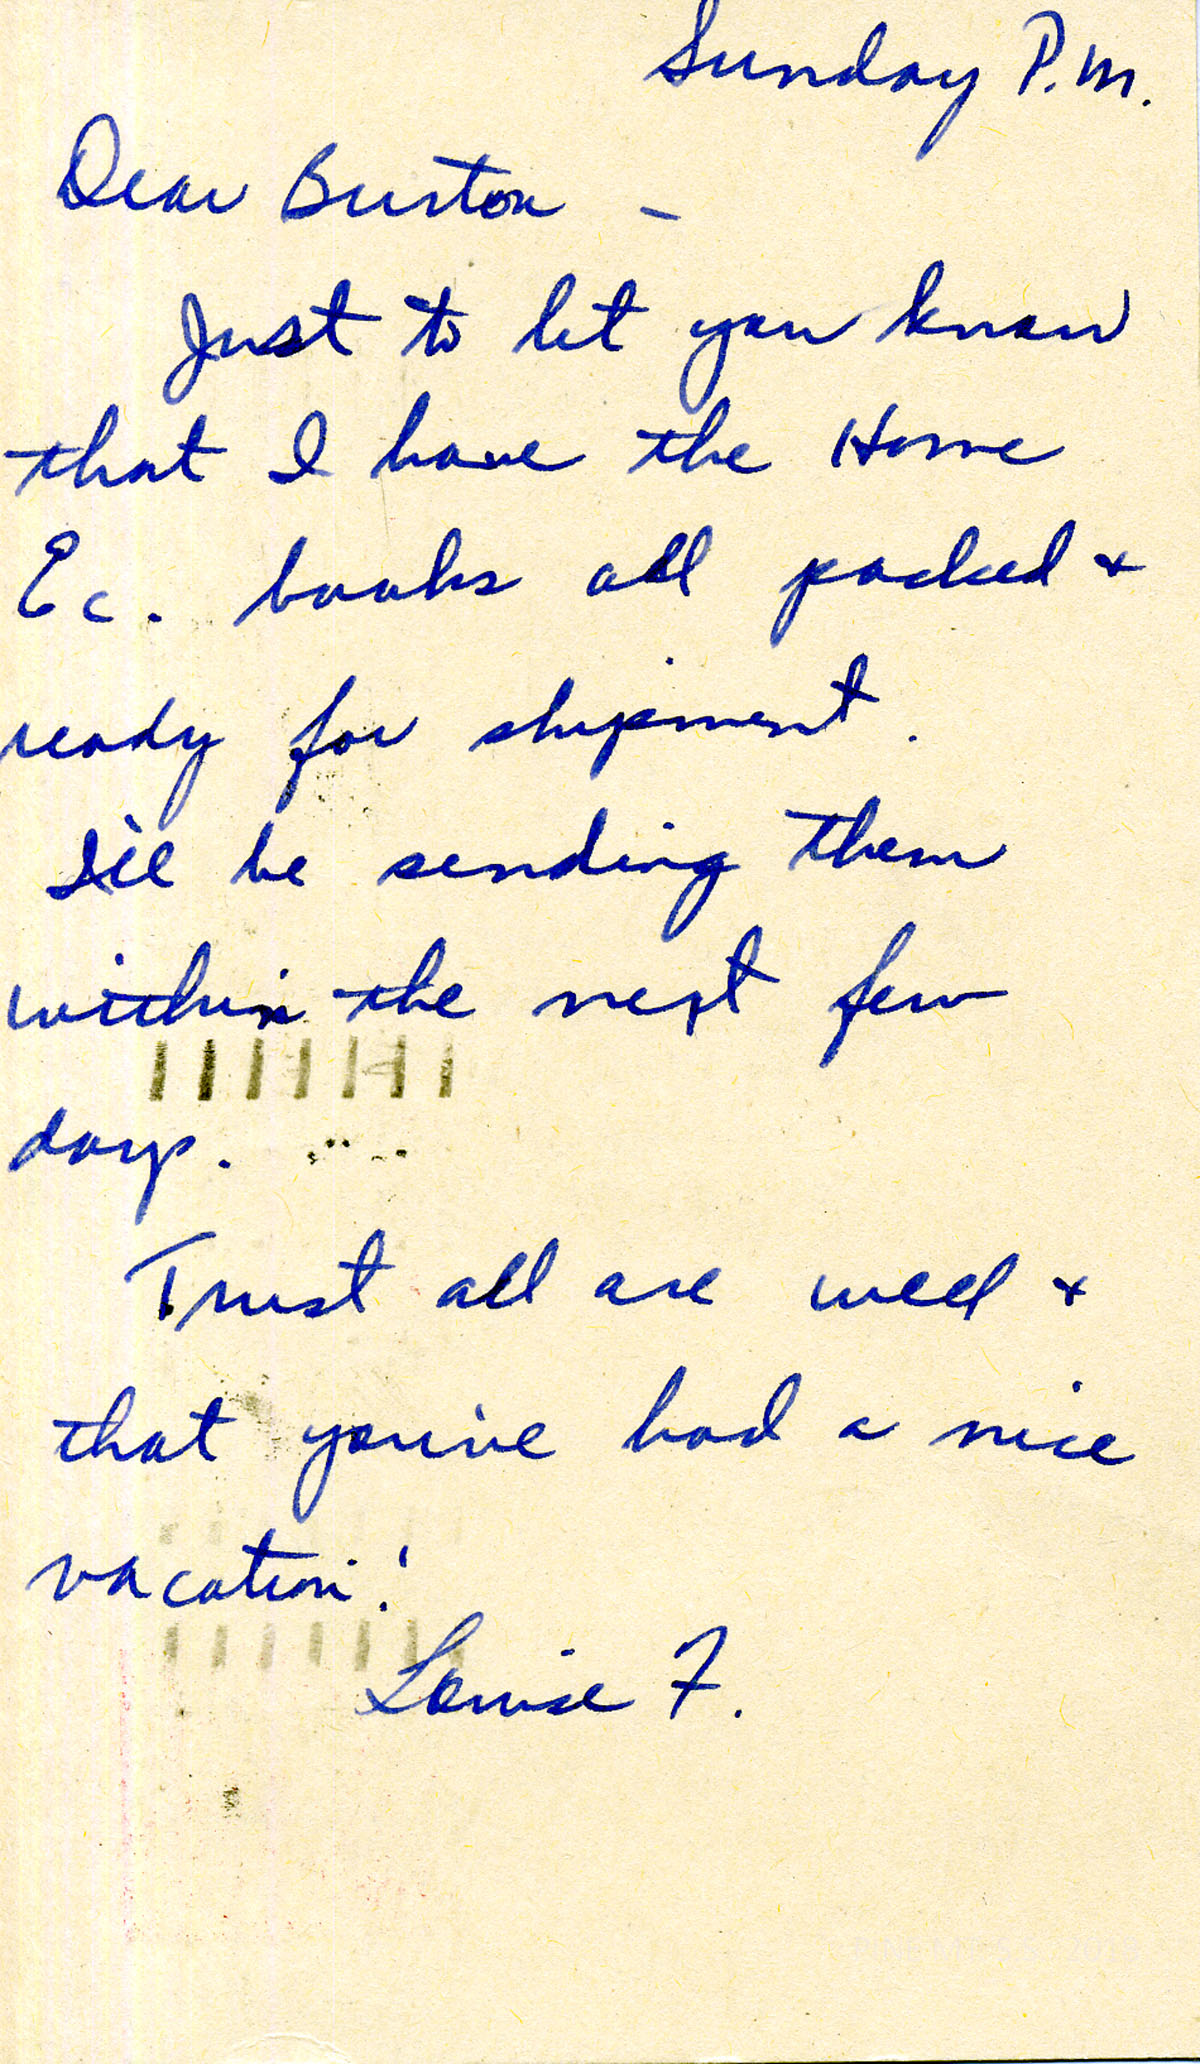 Sunday P.M.
Dear Burton -
Just to let you know
that I have the Home
Ec. books all packed +
ready for shipment.
I'll be sending them
within the next few
days.
Trust all are well +
that you've had a nice
vacation!
Louise F.